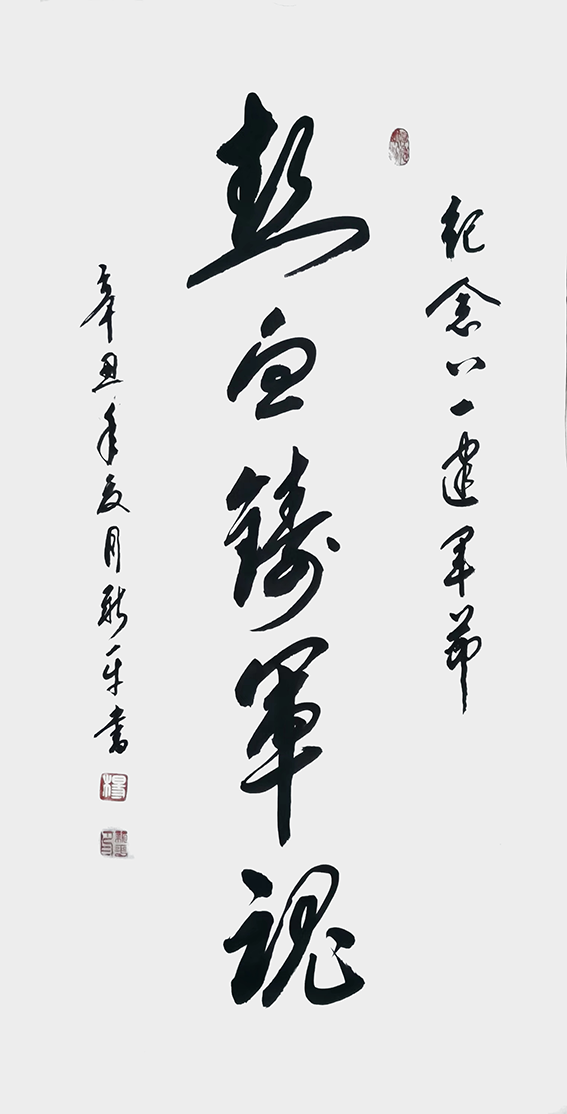 纪念八一建军节
热血鑄軍魂
辛丑年夏月新平书
楊